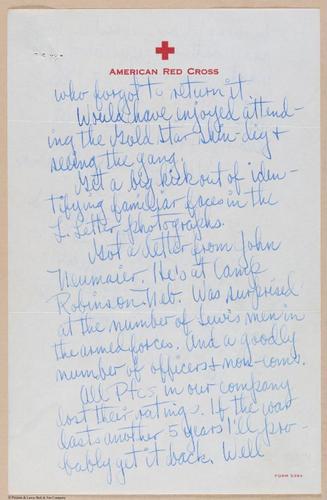 AMERICAN RED CROSS
who forgot to return it.
Would have enjoyed attend-
ing the Gold Star Shin-dig &
seeing the gang.
Get a big kick out of iden-
tifying familiar faces in the
L. Letter photographs.
Got a letter from John
Neumaier. He's at Camp
Robinson-Neb. Was surprised
at the number of Lewis men in
the armed forces. And a goodly
number of officers & non-coms.
All Pfcs, in our company
lost their rating. If the war
lasts another 5 years I'll pro-
bably get it back. Well
FORM 539A